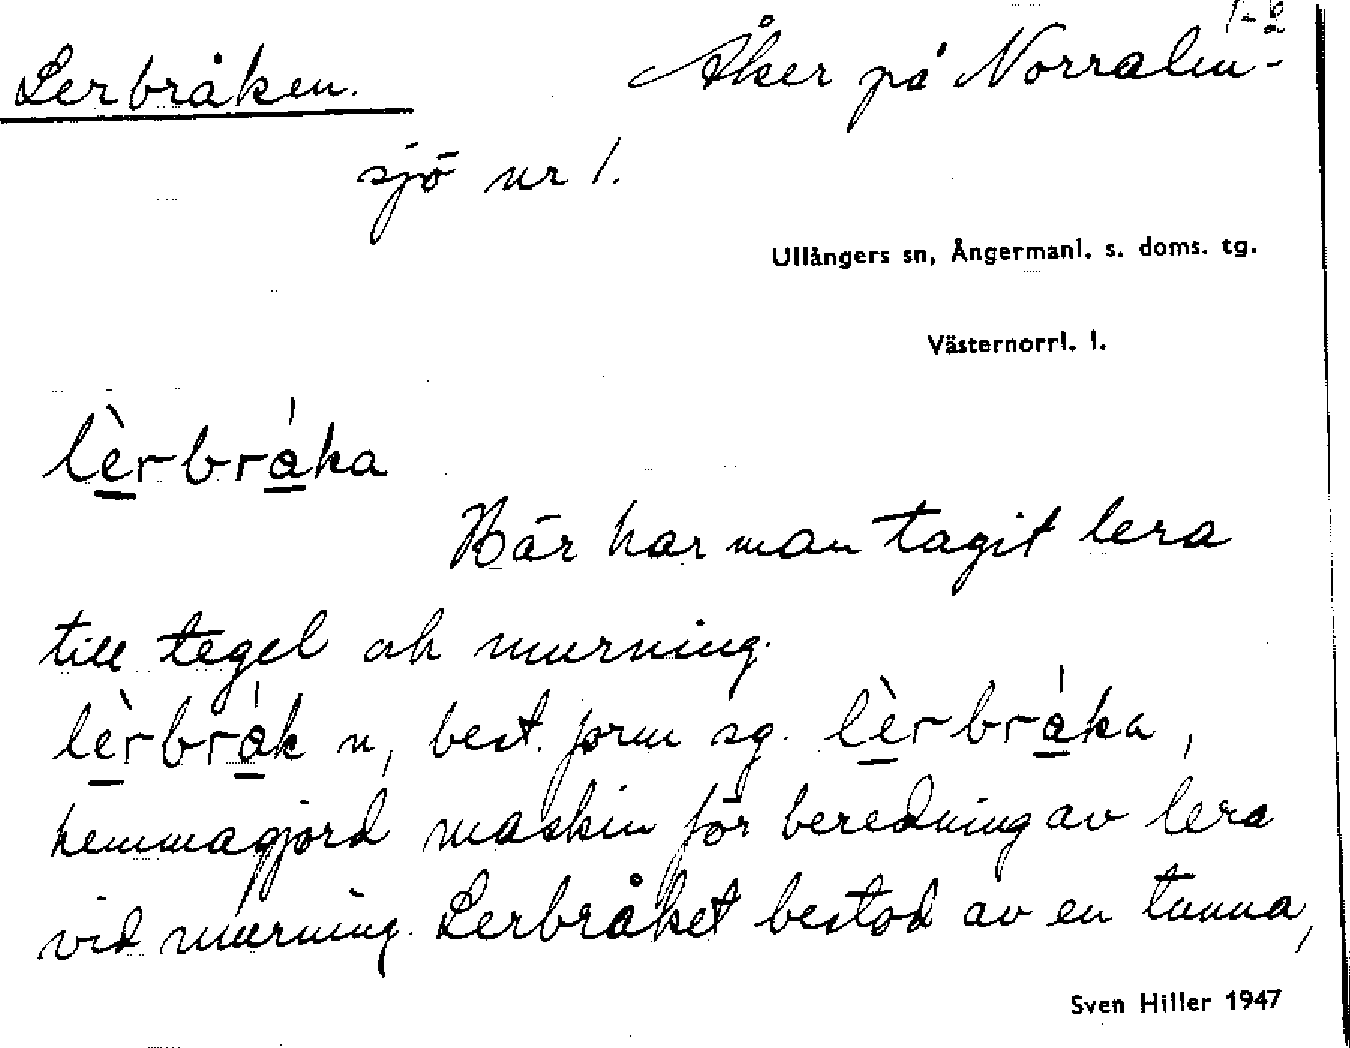 1-2
Lerbråken. Åker på Norralin-
sjö nr 1.
Ullångers sn, Ångermanl. s. doms. tg.
Västernorrl. l.
lèrbråka
Här har man tagit lera
till tegel och murning.
lèrbråk n, best. form sg. lèrbråka,
hemmagjord maskin för beredning av lera
vid murning. Lerbråket bestod av en tunna,
Sven Hiller 1947